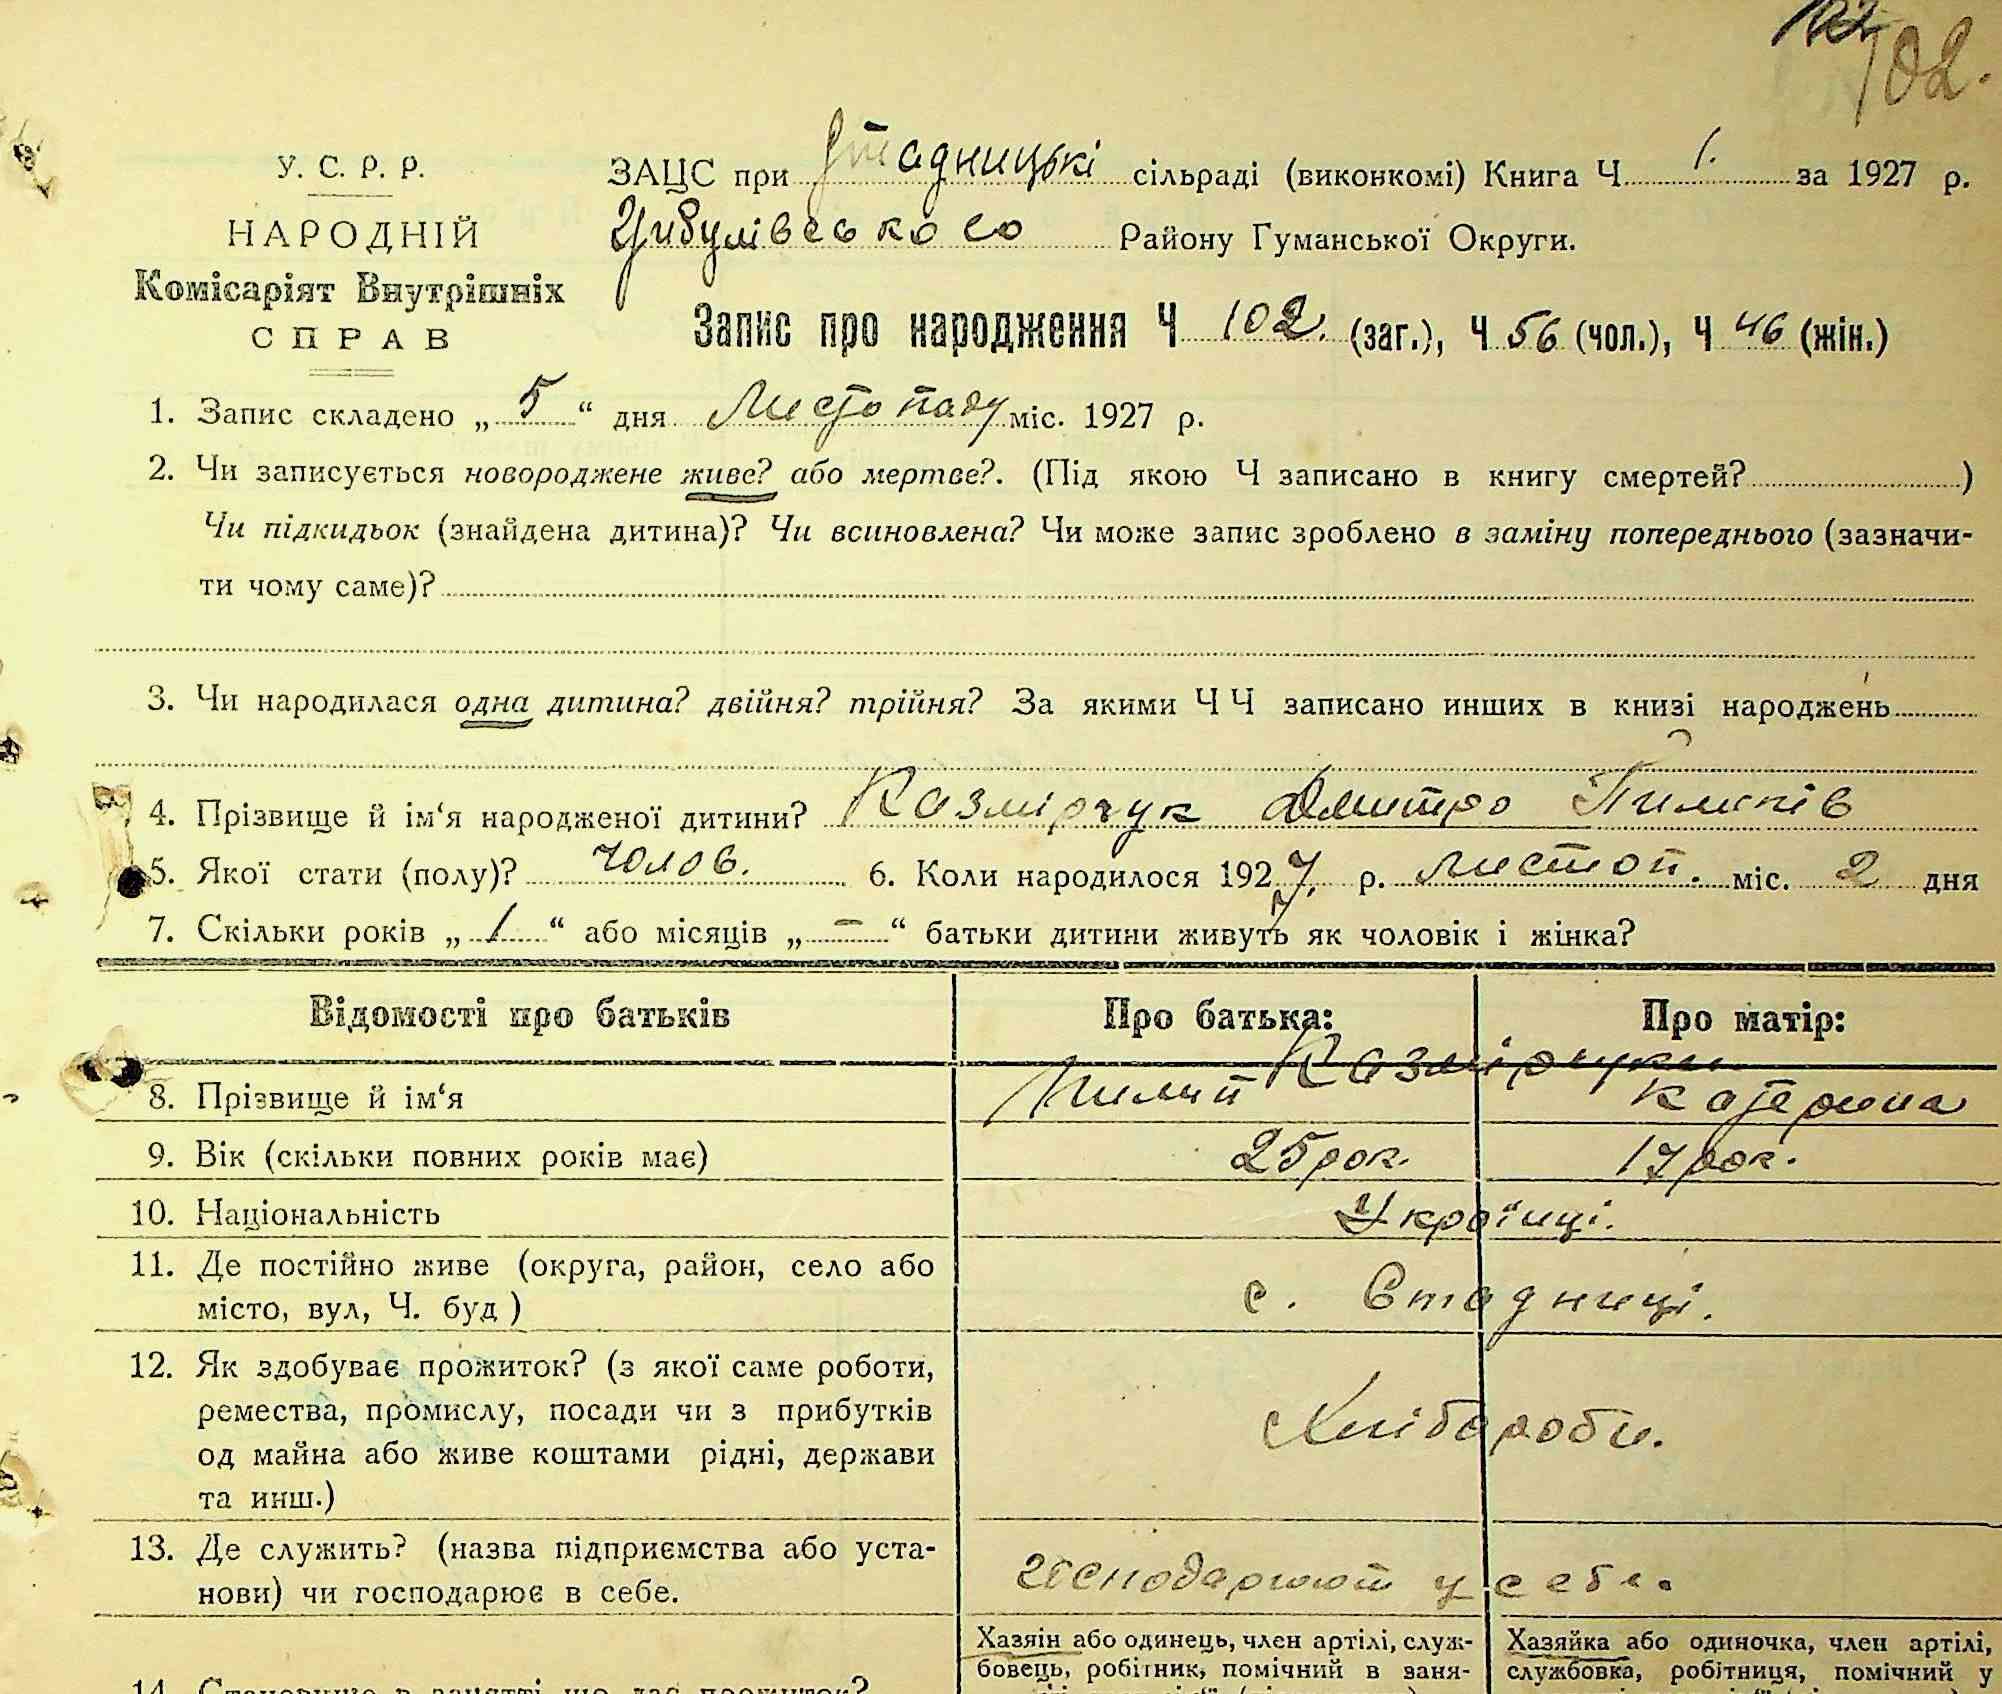 102.
У. С. Р. Р.
НАРОДНІЙ
Комісаріят Внутрішніх
СПРАВ
ЗАЦС при Стадницькі сільраді (виконкомі) Книга Ч 1. за 1927 р.
Цибулівського Району Гуманської Округи.
Запис про народження Ч 102. (заг.), Ч 56 (чол.), Ч 46 (жін.)
1. Запис складено „ 5 “ дня Листопаду міс. 1927 р.
2. Чи записується новороджене живе? або мертве?. (Під якою Ч записано в книгу смертей? )
Чи підкидьок (знайдена дитина)? Чи всиновлена? Чи може запис зроблено в заміну попереднього (зазначи-
ти чому саме)?
3. Чи народилася одна дитина? двійня? трійня? За якими Ч Ч записано инших в книзі народжень
4. Прізвище й ім‘я народженої дитини? Казмірчук Дмитро Пилипів
5. Якої стати (полу)? чолов. 6. Коли народилося 1927. р. листоп. міс. 2 дня
7. Скільки років „ 1 “ або місяців „ – “ батьки дитини живуть як чоловік і жінка?
Відомості про батьків Про батька: Про матір:
Казмірчуки
8. Прізвище й ім‘я Пилип Катерина
9. Вік (скільки повних років має) 25 рок. 17 рок.
10. Національність Українці.
11. Де постійно живе (округа, район, село або
місто, вул, Ч. буд ) с. Стадниці.
12. Як здобуває прожиток? (з якої саме роботи,
ремества, промислу, посади чи з прибутків
од майна або живе коштами рідні, держави
та инш.) Хлібороби.
13. Де служить? (назва підприємства або уста-
нови) чи господарює в себе. господарюют у себе.
Хазяін або одинець, член артілі, служ-
бовець, робітник, помічний в заня-
Хазяйка або одиночка, член артілі,
службовка, робітниця, помічний у
14. Становище в занятті що дає прожиток?